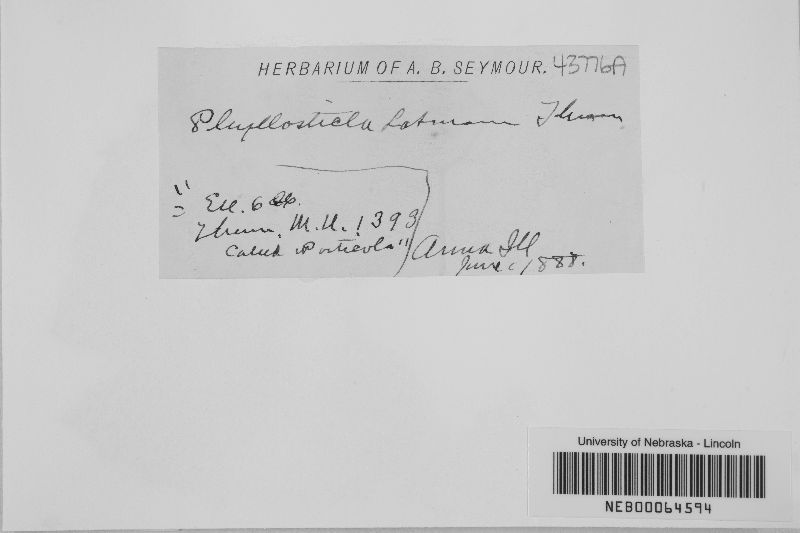 HERBARIUM OF A. B. SEYMOUR. 43776A
Phyllosticta Labruscae Thum
" Ell.
= Thuem. M. U. ! 393
Called
Anna Ill
June, 1888.
University of Nebraska - Lincoln
NEB00064594